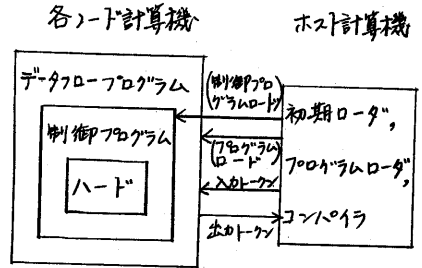 各ノード計算機
ホスト計算機
データフロープログラム
制御プログラム
ハード
(制御プロ
グラムロード)
(プログラム
ロード)
入力トークン
出力トークン
初期ローダ,
プログラムローダ,
コンパイラ